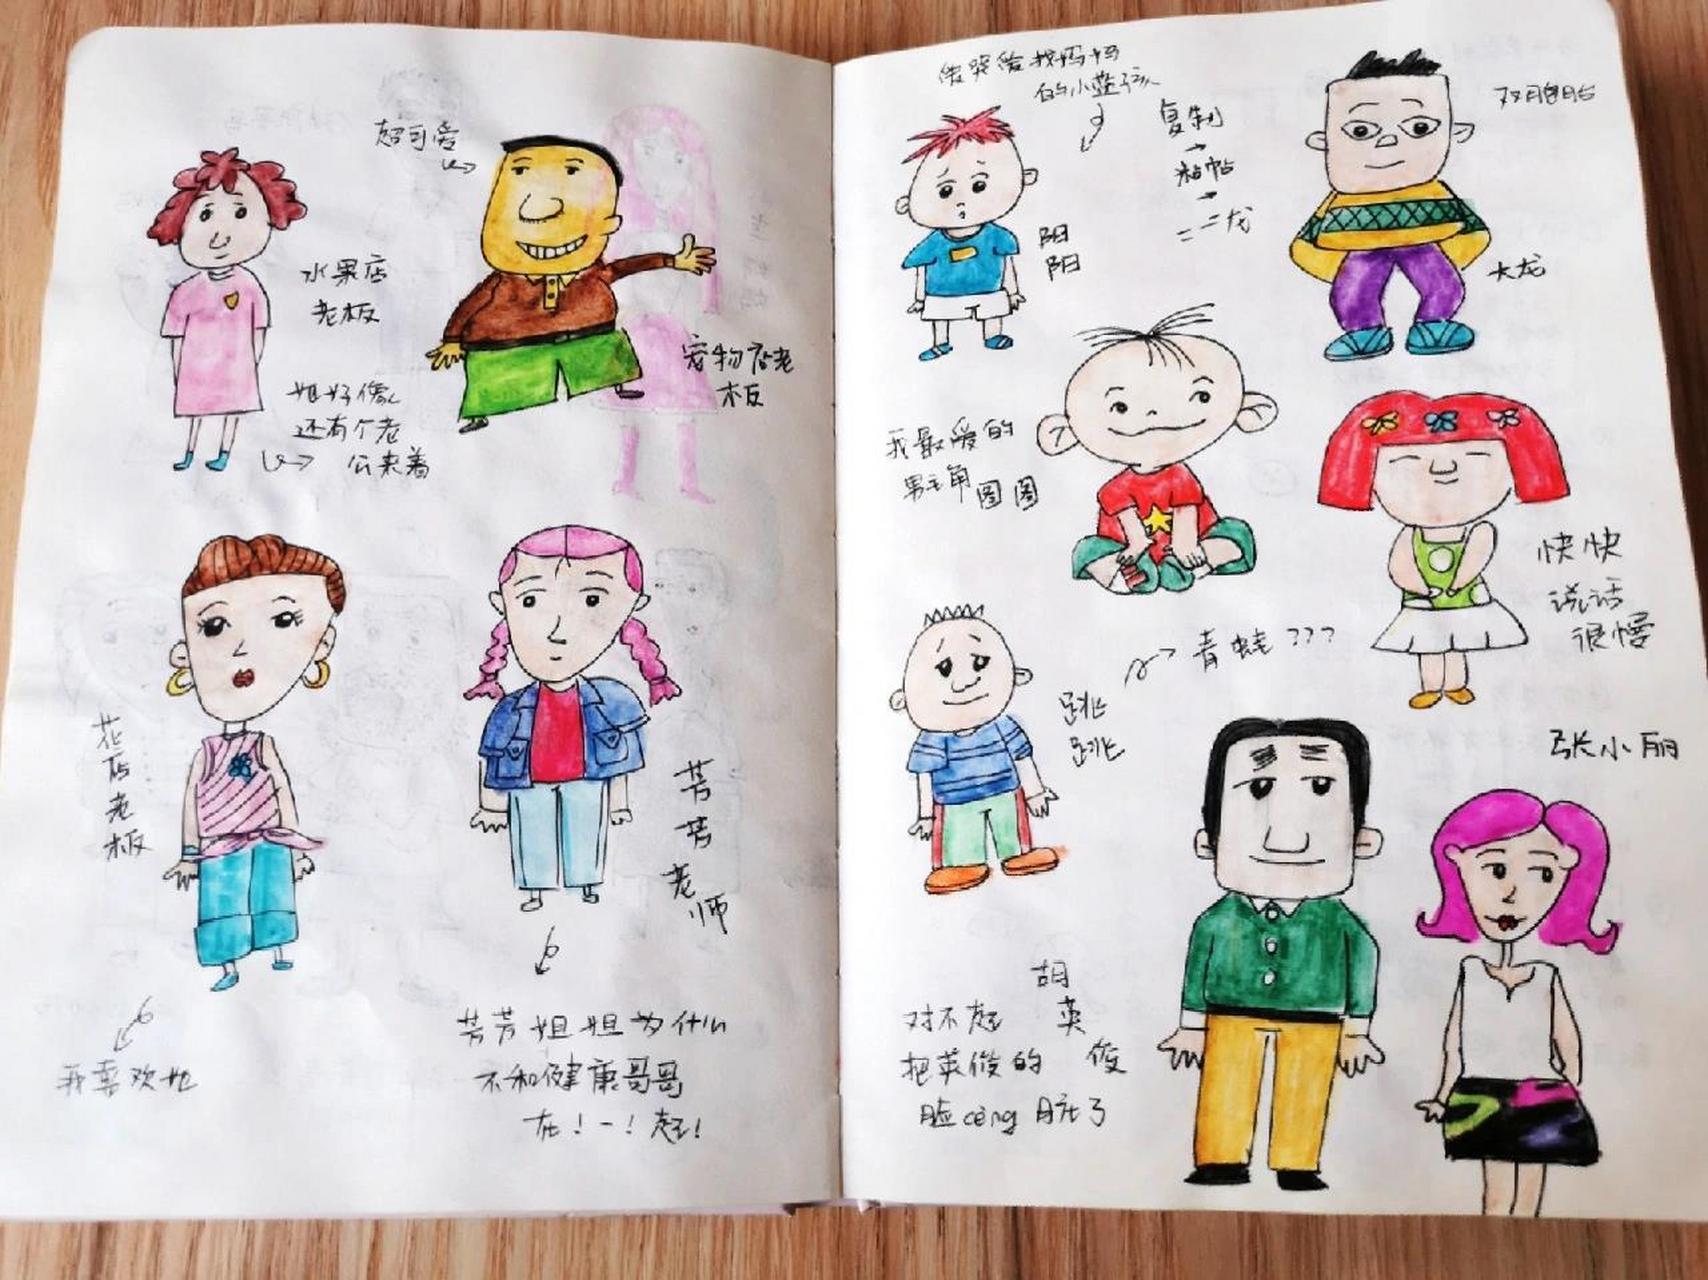 超可爱
水果店
老板
她好像
还有个老
公来着
宠物店老
板
花
店
老
板
我喜欢她
芳
芳
老
师
芳芳姐姐为什么
不和健康哥哥
在！一！起！
傻哭傻找妈妈
的小蓝孩
复制
粘帖
二龙
双胞胎
大龙
阳
阳
我最爱的
男主角 图图
快快
说话
很慢
青蛙???
跳
跳
张小丽
胡
英
俊
对不起
把英俊的
脸cèng脏了